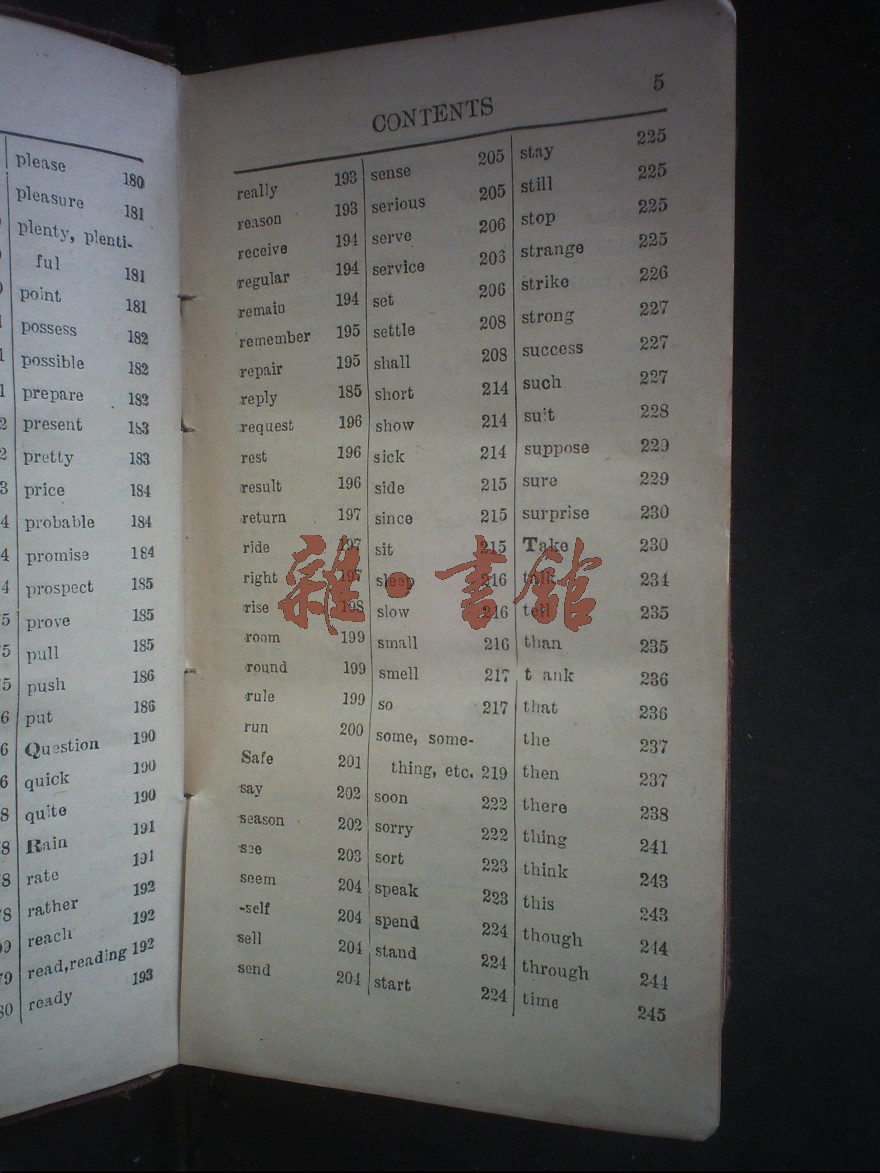 please 180
pleasure 181
plenty, plenti-
ful 181
point 181
possess 182
possible 182
prepare 182
present 183
pretty 183
price 184
probable 184
promise 184
prospect 185
prove 185
pull 185
push 186
put 186
Question 190
quick 190
quite 190
Rain 191
rate 191
rather 192
reach 192
read,reading 192
ready 193
CONTENTS 5
really 193
reason 193
receive 194
regular 194
remain 194
remember 195
repair 195
reply 185
request 196
rest 196
result 196
return 197
ride 197
right 197
rise 198
room 199
round 199
rule 199
run 200
Safe 201
say 202
season 202
see 203
seem 204
-self 204
sell 204
send 204
sense 205
serious 205
serve 206
service 206
set 206
settle 208
shall 208
short 214
show 214
sick 214
side 215
since 215
sit 215
sleep 216
slow 216
small 216
smell 217
so 217
some, some-
thing, etc. 219
soon 222
sorry 222
sort 223
speak 223
spend 224
stand 224
start 224
stay 225
still 225
stop 225
strange 225
strike 226
strong 227
success 227
such 227
suit 228
suppose 229
sure 229
surprise 230
Take 230
talk 234
tell 235
than 235
t ank 236
that 236
the 237
then 237
there 238
thing 241
think 243
this 243
though 244
through 244
time 245
雜·書館